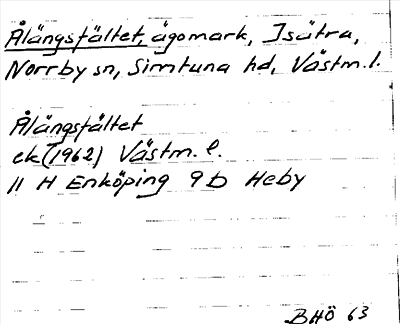 Ålängsfältet, ägomark, Isätra,
Norrby sn, Simtuna hd, Västm. l.
Ålängsfältet
ek (1962) Västm. l.
11 H Enköping 9 b Heby
BHÖ 63